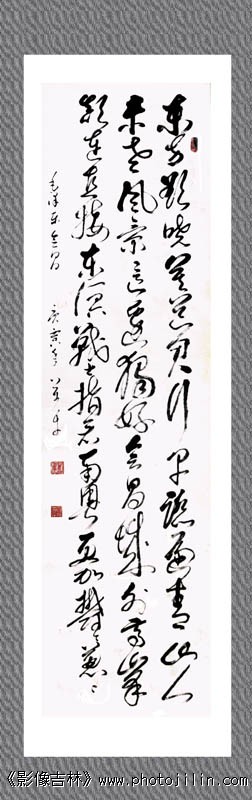 东方欲晓莫道君行早踏遍青山人
未老风景这边独好会昌城外高峰
颠连直接东溟战士指看南粤更加郁郁葱葱
毛泽东会昌 庚寅年
《影像吉林》www.photojilin.com